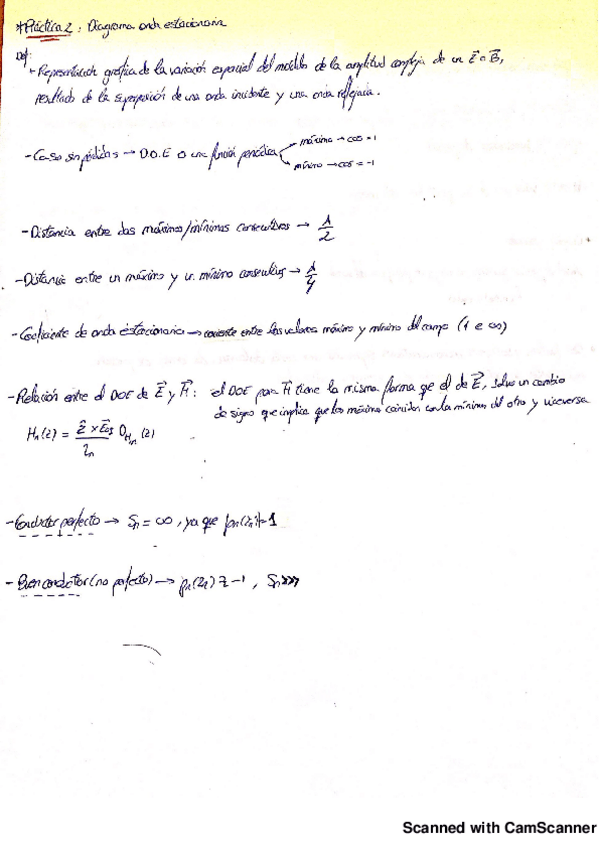 *Práctica 2: Diagrama onda estacionaria
Def:
+ Representación gráfica de la variación espacial del módulo de la amplitud compleja de un E⃗ o B⃗,
resultado de la superposición de una onda incidente y una onda reflejada.
- Caso sin pérdidas → D.O.E o una función periódica
máximo → cos = 1
mínimo → cos = -1
- Distancia entre dos máximos/mínimos consecutivos → λ/2
- Distancia entre un máximo y un mínimo consecutivo → λ/4
- Coeficiente de onda estacionaria → cociente entre los valores máximo y mínimo del campo (1 e ∞)
- Relación entre el DOE de E⃗ y H⃗: el DOE para H⃗ tiene la misma forma que el de E⃗, salvo un cambio
de signo que implica que los máximos coinciden con la mínimos del otro y viceversa
- Conductor perfecto → Sn = ∞, ya que
- Buen conductor (no perfecto) →
Scanned with CamScanner